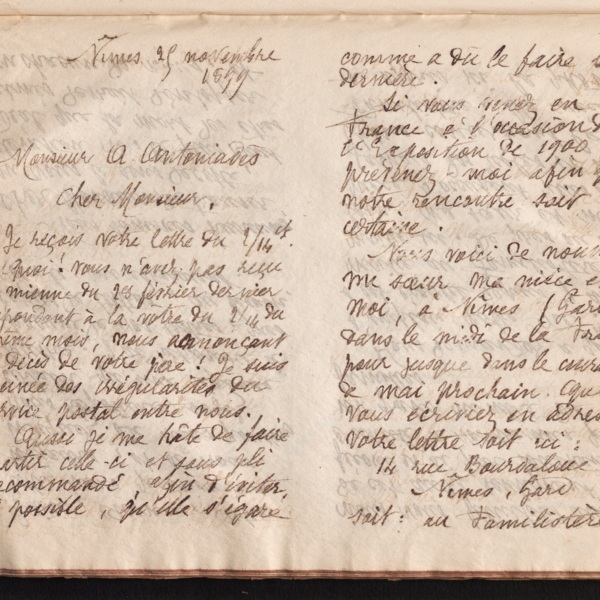 Nimes 25 novembre
1899
Monsieur A Antoniades
Cher Monsieur,
Je reçois votre lettre du 2/14 ct.
quoi! vous n'avez pas reçu
mienne du 28 février dernier
pondant à la votre du 2/14 du
ême mois, nous annonçant
décès de votre père! Je suis
des irrégularités du
rvice postal entre nous.
Aussi je me hâte de faire
artir celle-ci et sous pli
ecommandé afin d'éviter,
possible, qu'elle s'égare
comme a dû le faire
dernière.
Si vous venez en
France à l'occasion d
l'Exposition de 1900
prévenez-moi afin q
notre rencontre soit
certaine.
Nous voici de nouv
ma sœur ma nièce e
moi, à Nîmes (Gard
dans le midi de la Fra
pour jusque dans le cour
de mai prochain. Que
vous écriviez en adres
votre lettre soit ici:
14 rue Bourdaloue
Nimes, Gard
soit: au Familistère